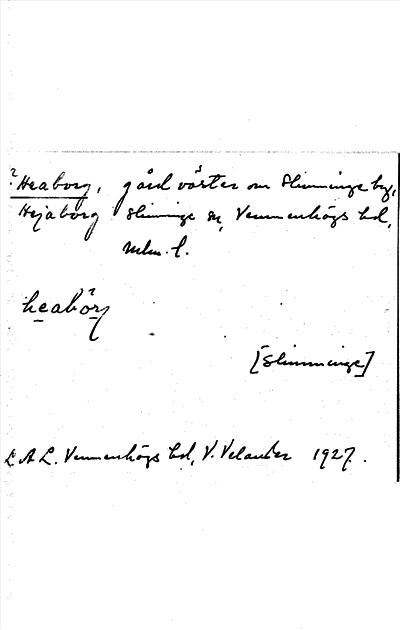 ? Heaborg, gård väster om Slimminge by,
Hejaborg Slimminge sn, Vemmenhögs hd,
Mlm. l.
heabörj
[Slimminge]
LAL. Vemmenhögs hd, V. Velander 1927.